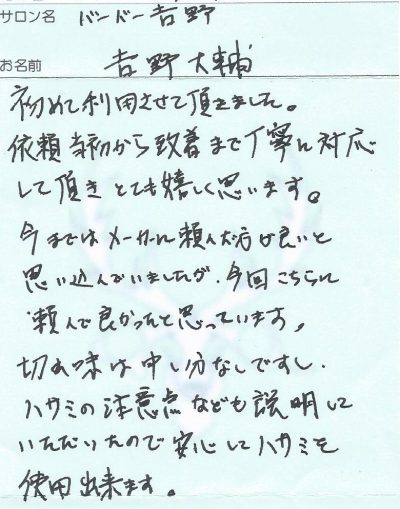 サロン名 バーバー吉野
お名前 吉野大輔
初めて利用させて頂きました。
依頼当初から到着まで丁寧に対応
して頂きとても嬉しく思います。
今まではメーカーに頼んだ方が良いと
思い込んでいましたが、今回こちらに
頼んで良かったと思っています。
切れ味は申し分なしですし、
ハサミの注意点なども説明して
いただいたので安心してハサミを
使用出来ます。